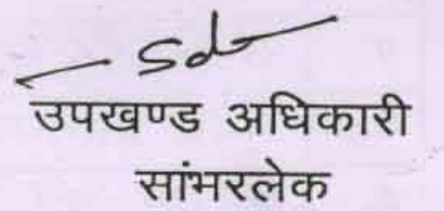 Sd
उपखण्ड अधिकारी
सांभरलेक